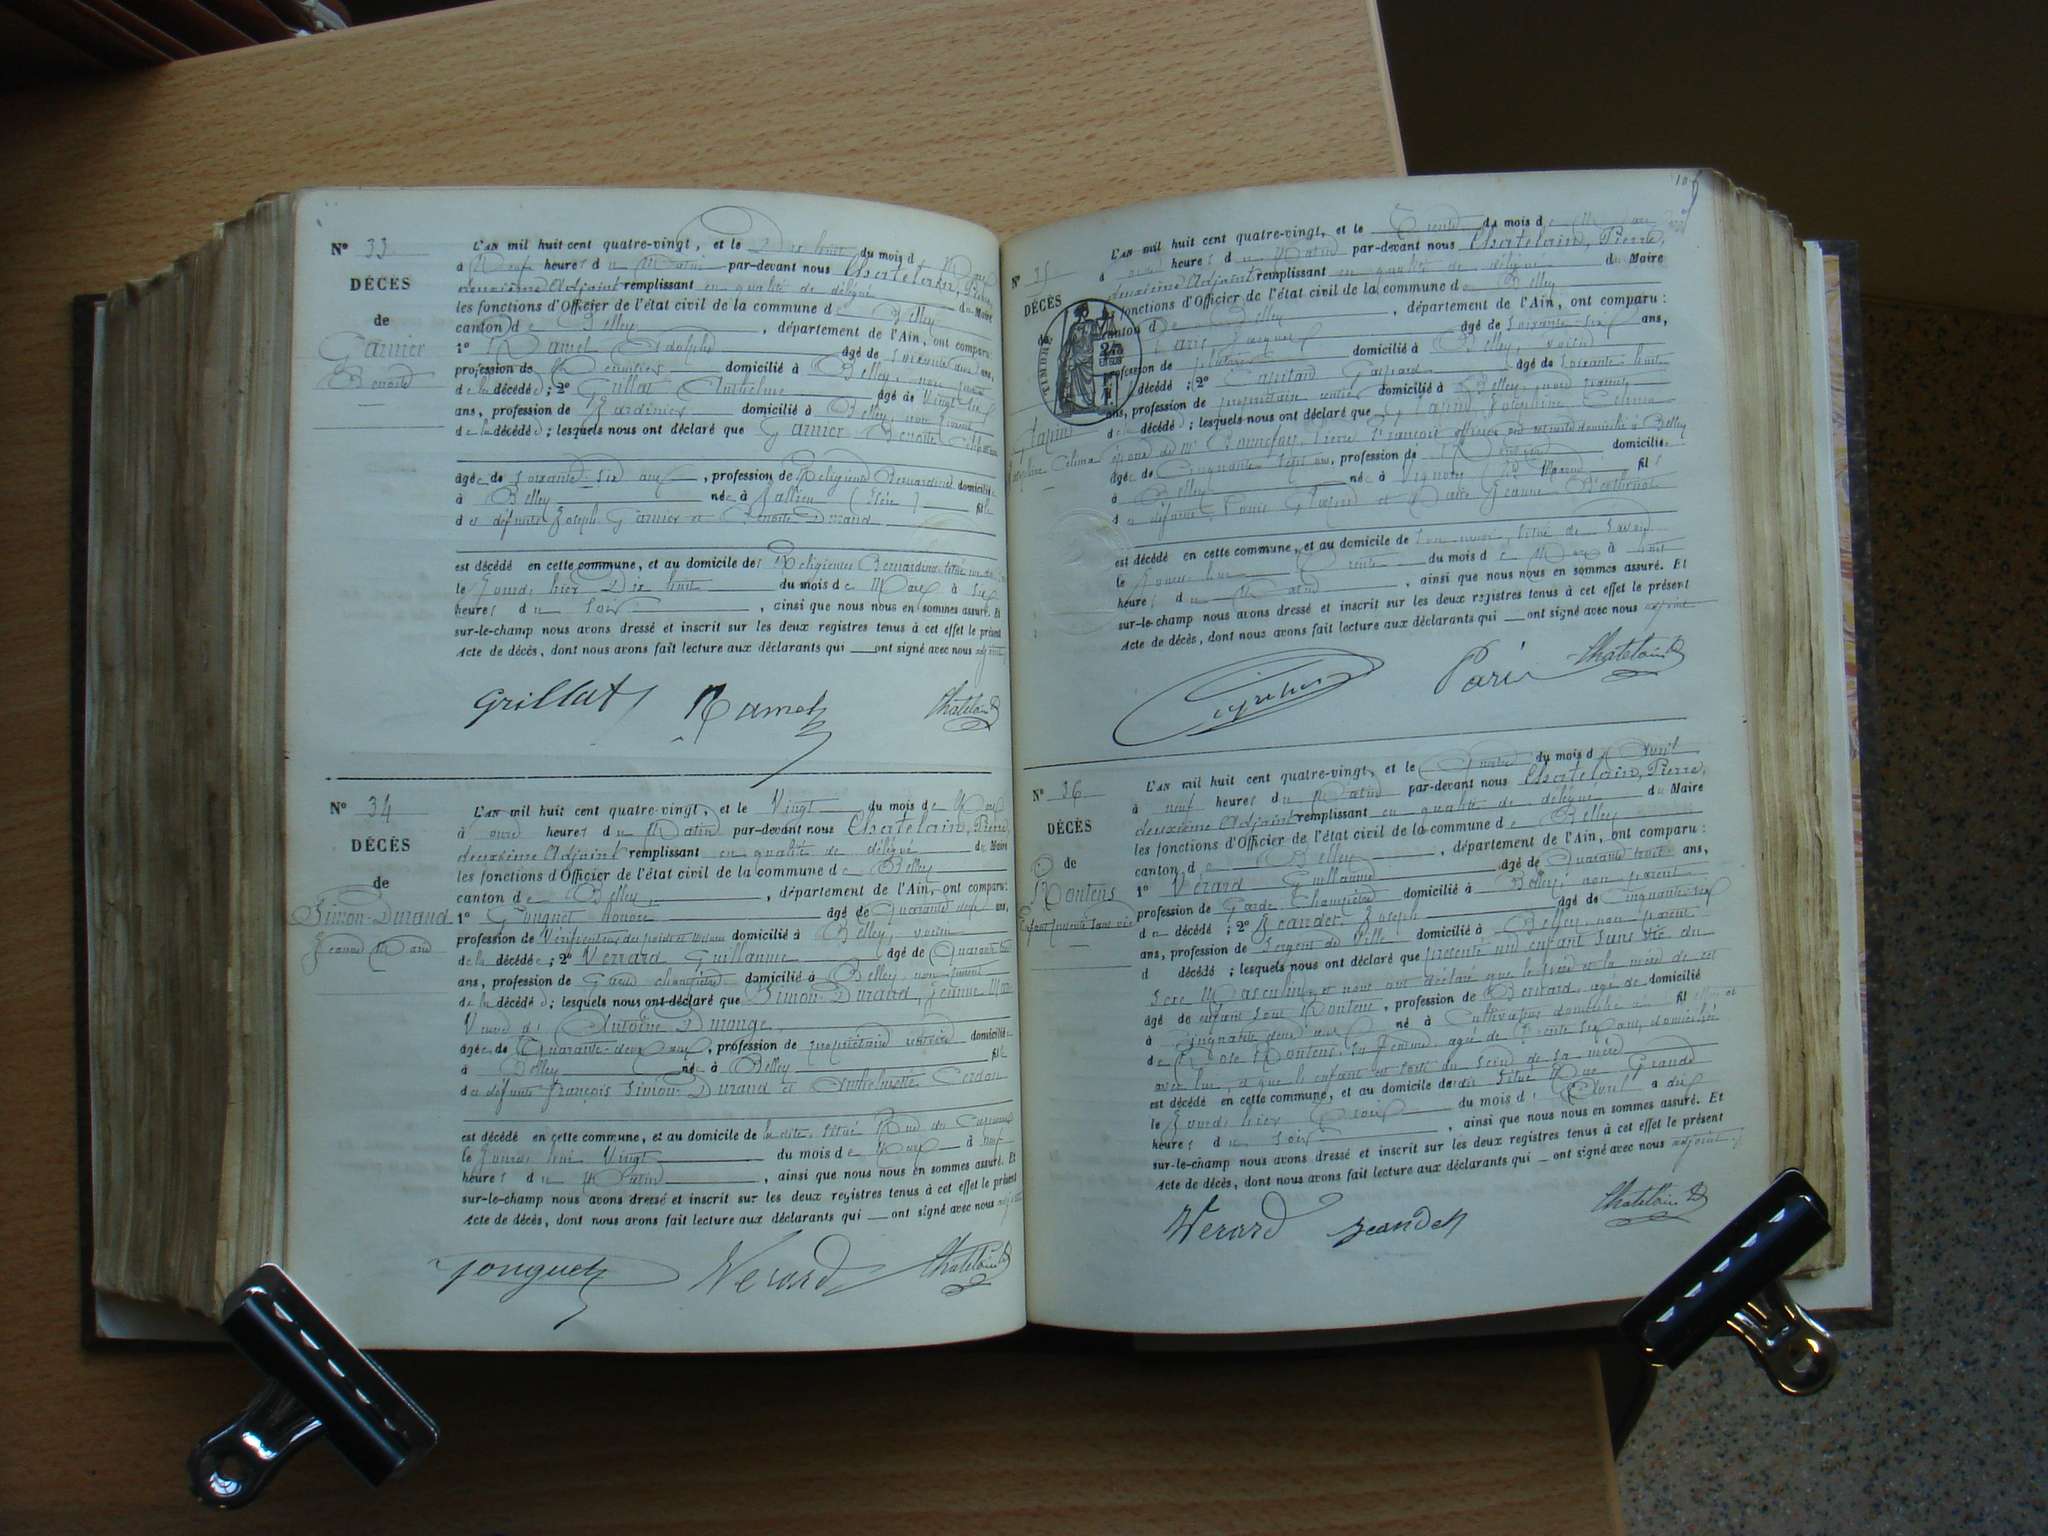 N° 33
DÉCÈS
de
Garnier
Benoite
L'AN mil huit cent quatre-vingt, et le Dix huit du mois de Mars
à Neuf heures du Matin par-devant nous Chatelain, Pierre,
deuxième Adjoint remplissant en qualité de délégué du Maire
les fonctions d'Officier de l'état civil de la commune de Belley
canton de Belley, département de l'Ain, ont comparu:
1° Ramel Adolphe âgé de soixante deux ans,
profession de domicilié à Belley, non parent
de la décédée; 2° Grillat Anthelme âgé de Vingt six
ans, profession de Jardinier domicilié à Belley, non parent
de la décédée; lesquels nous ont déclaré que Garnier Benoite
âgée de soixante six ans, profession de Religieuse Bernardine domiciliée
à Belley née à Jallieu (Isère) fille
des défunts Joseph Garnier et Benoite Durand
est décédée en cette commune, et au domicile des Religieuses Bernardines
le jour d'hier Dix huit du mois de Mars à six
heures du soir, ainsi que nous nous en sommes assuré. Et
sur-le-champ nous avons dressé et inscrit sur les deux registres tenus à cet effet le présent
Acte de décès, dont nous avons fait lecture aux déclarants qui ont signé avec nous adjoint.
Grillat Ramel Chatelain
N° 34
DÉCÈS
de
Simon-Durand
Jeanne Marie
L'AN mil huit cent quatre-vingt, et le Vingt du mois de Mars
à onze heures du Matin par-devant nous Chatelain, Pierre,
deuxième Adjoint remplissant en qualité de délégué du Maire
les fonctions d'Officier de l'état civil de la commune de Belley
canton de Belley, département de l'Ain, ont comparu:
1° Gonguet honoré âgé de Quarante ans,
profession de Vérificateur des poids et mesures domicilié à Belley, voisin
de la décédée; 2° Verrard Guillaume âgé de Quarante
ans, profession de Garde champêtre domicilié à Belley non parent
de la décédée; lesquels nous ont déclaré que Simon-Durand, Jeanne Marie
Veuve de Antoine
âgée de Quarante-deux ans, profession de propriétaire domiciliée
à Belley née à Belley fille
des défunts françois Simon-Durand et Anthelmette Cerdon
est décédée en cette commune, et au domicile de la dite, situé Rue du
le Jourd'hui Vingt du mois de Mars à neuf
heures du Matin, ainsi que nous nous en sommes assuré. Et
sur-le-champ nous avons dressé et inscrit sur les deux registres tenus à cet effet le présent
Acte de décès, dont nous avons fait lecture aux déclarants qui ont signé avec nous adjoint
Gonguet Verard Chatelain
10
N° 35
DÉCÈS
de
TIMBRE
Joséphine Celina
L'AN mil huit cent quatre-vingt, et le Trente du mois de Mars
à onze heures du Matin par-devant nous Chatelain, Pierre,
deuxième Adjoint remplissant en qualité de délégué du Maire
les fonctions d'Officier de l'état civil de la commune de Belley
canton de Belley, département de l'Ain, ont comparu:
Paris Jacques âgé de soixante-six ans,
profession de plâtrier domicilié à Belley, voisin
de la décédée; 2° Gaspard âgé de soixante-huit
ans, profession de propriétaire rentier domicilié à Belley, non parent
de la décédée; lesquels nous ont déclaré que Joséphine Celina
épouse de Mr Pierre François officier en retraite domicilié à Belley
âgée de Cinquante-sept ans, profession de domiciliée
à Belley née à fille
des défunts Louis et Marie Jeanne
est décédée en cette commune, et au domicile de son mari, situé
le Jourd'hui Trente du mois de Mars à huit
heures du Matin, ainsi que nous nous en sommes assuré. Et
sur-le-champ nous avons dressé et inscrit sur les deux registres tenus à cet effet le présent
Acte de décès, dont nous avons fait lecture aux déclarants qui ont signé avec nous adjoint
Paris Chatelain
N° 36
DÉCÈS
de
Montens
Enfant présenté sans vie
L'AN mil huit cent quatre-vingt, et le Quatre du mois d'Avril
à neuf heures du Matin par-devant nous Chatelain, Pierre,
deuxième Adjoint remplissant en qualité de délégué du Maire
les fonctions d'Officier de l'état civil de la commune de Belley
canton de Belley, département de l'Ain, ont comparu:
1° Verard Guillaume âgé de Quarante trois ans,
profession de Garde Champêtre domicilié à Belley, non parent
du décédé; 2° Jeandet Joseph âgé de Cinquante
ans, profession de Sergent de Ville domicilié à Belley non parent
d décédé; lesquels nous ont déclaré que présenté un enfant sans vie du
sexe Masculin, et nous ont déclaré que le père et la mère de cet
âgé de enfant sont Montens, profession de Bernard, âgé de domicilié
à Cinquante deux ans né à Cultivateur domicilié à fil
de Rose Montens, sa femme, âgée de Trente six ans, domiciliée
avec lui, et que le enfant est sorti du sein de sa mère
est décédé en cette commune, et au domicile de situé Rue Grande
le Jourd'hier Trois du mois d'Avril à dix
heures du soir, ainsi que nous nous en sommes assuré. Et
sur-le-champ nous avons dressé et inscrit sur les deux registres tenus à cet effet le présent
Acte de décès, dont nous avons fait lecture aux déclarants qui ont signé avec nous adjoint.
Verard Jeandet Chatelain